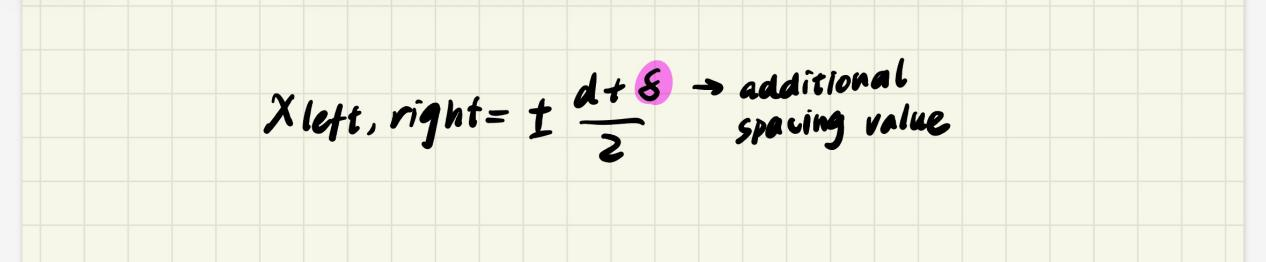 x left, right = ± (d + δ)/2 → additional
spacing value